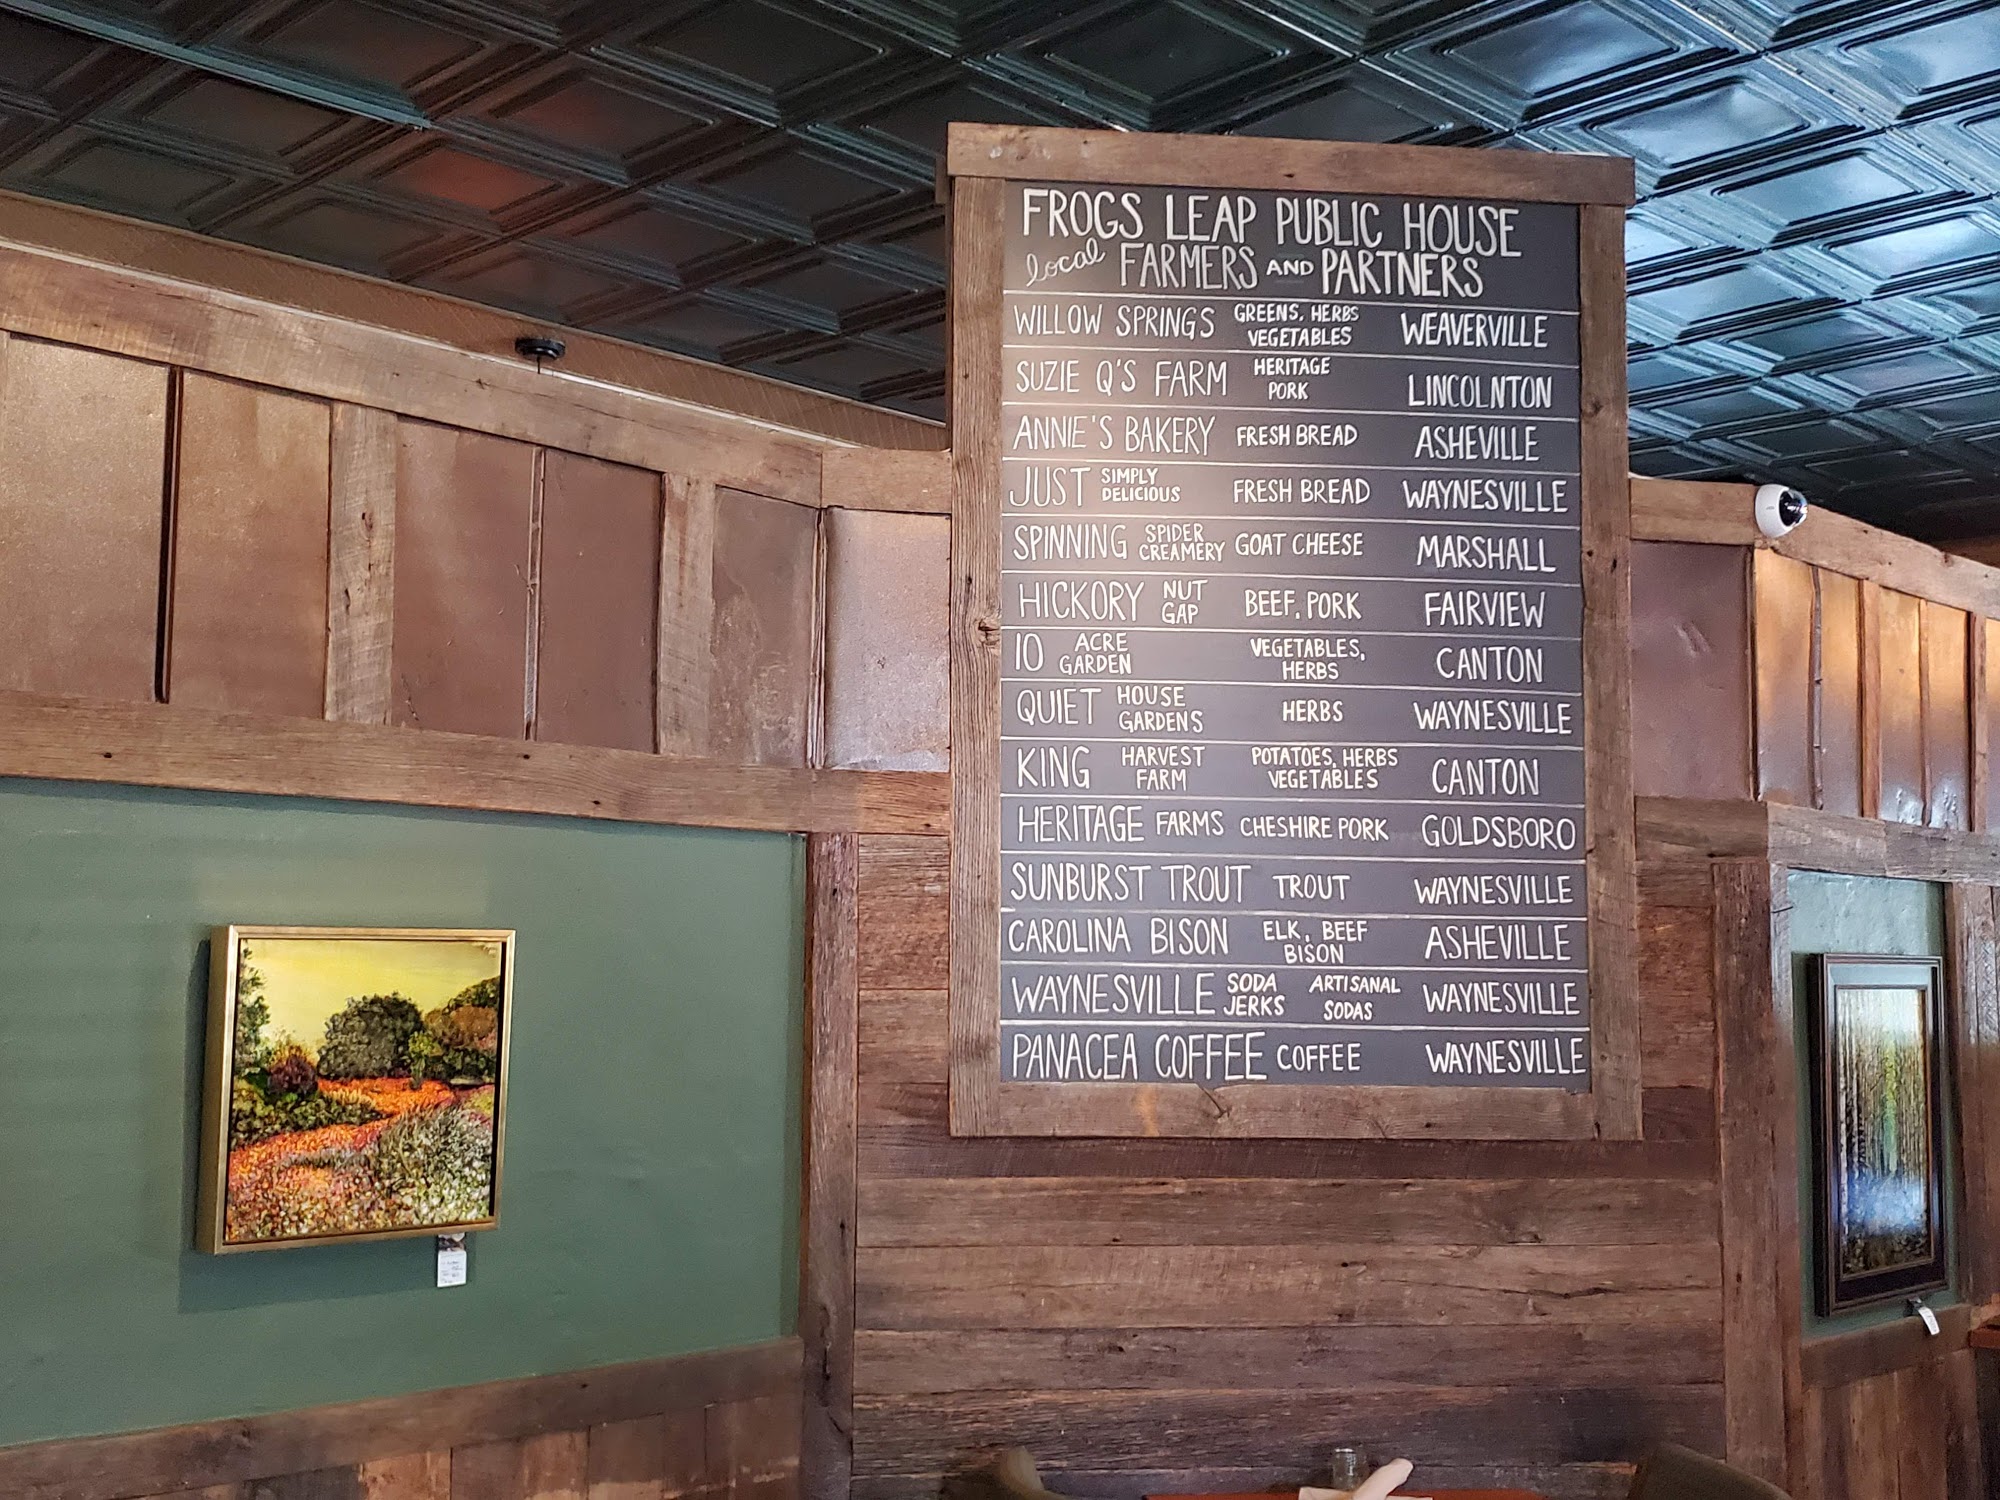 FROGS LEAP PUBLIC HOUSE
local FARMERS AND PARTNERS
WILLOW SPRINGS GREENS, HERBS VEGETABLES WEAVERVILLE
SUZIE Q'S FARM HERITAGE PORK LINCOLNTON
ANNIE'S BAKERY FRESH BREAD ASHEVILLE
JUST SIMPLY DELICIOUS FRESH BREAD WAYNESVILLE
SPINNING SPIDER CREAMERY GOAT CHEESE MARSHALL
HICKORY NUT GAP BEEF, PORK FAIRVIEW
10 ACRE GARDEN VEGETABLES, HERBS CANTON
QUIET HOUSE GARDENS HERBS WAYNESVILLE
KING HARVEST FARM POTATOES, HERBS VEGETABLES CANTON
HERITAGE FARMS CHESHIRE PORK GOLDSBORO
SUNBURST TROUT TROUT WAYNESVILLE
CAROLINA BISON ELK, BEEF BISON ASHEVILLE
WAYNESVILLE SODA JERKS ARTISANAL SODAS WAYNESVILLE
PANACEA COFFEE COFFEE WAYNESVILLE